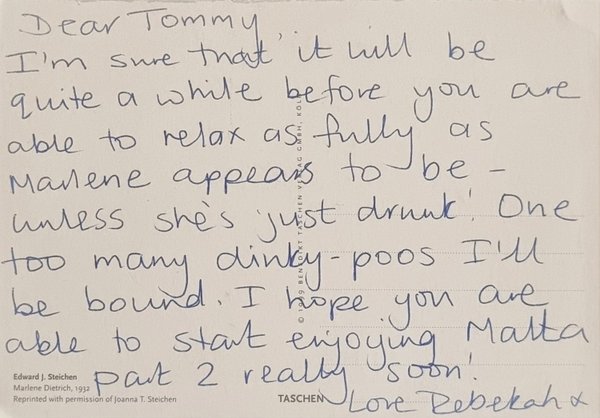 Dear Tommy
I'm sure that it will be
quite a while before you are
able to relax as fully as
Marlene appears to be -
unless she's just drunk! One
too many dinky-poos I'll
be bound. I hope you are
able to start enjoying Malta
part 2 really soon!
Love Rebekah x
Edward J. Steichen
Marlene Dietrich, 1932
Reprinted with permission of Joanna T. Steichen
TASCHEN
BENEDIKT TASCHEN VERLAG GMBH, KÖL